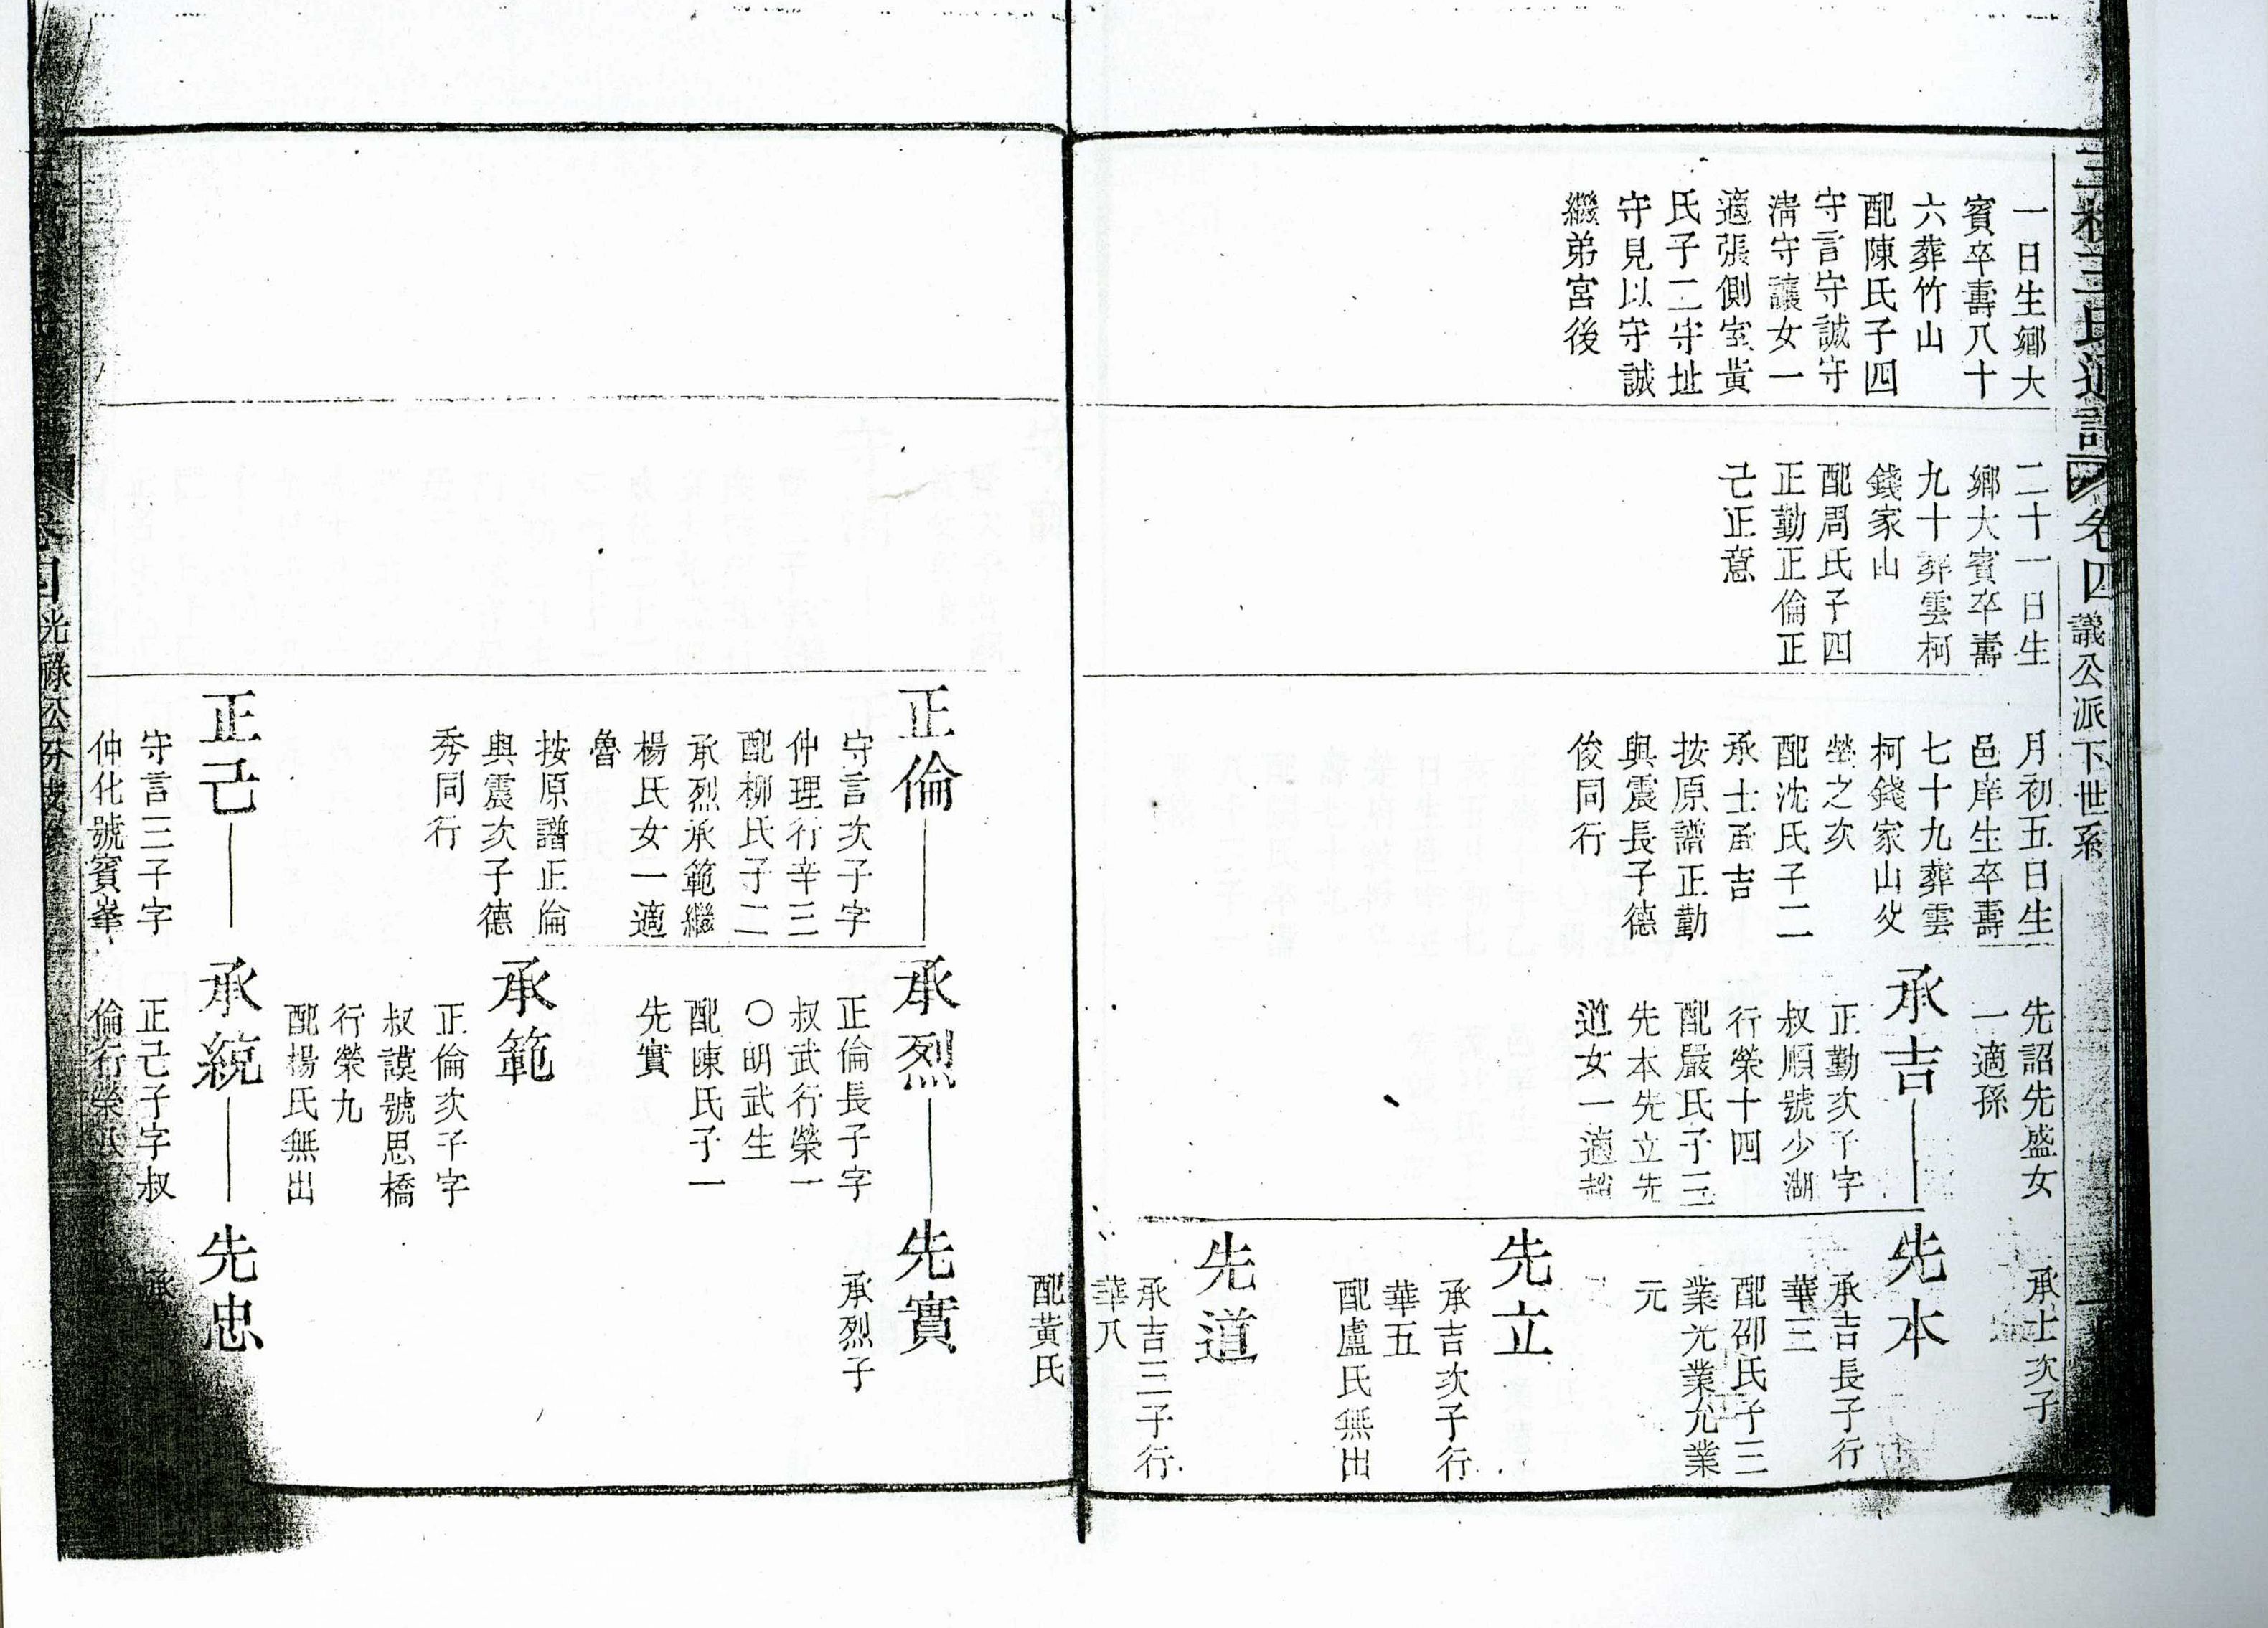 王氏通譜
卷四
議公派下世系
一日生鄉大
賓卒壽八十
六葬竹山
配陳氏子四
守言守誠守
清守讓女一
適張側室黃
氏子二守址
守見以守誠
繼弟宮後
二十一日生
鄉大賓卒壽
九十葬雲柯
錢家山
配周氏子四
正勤正倫正
己正意
月初五日生
邑庠生卒壽
七十九葬雲
柯錢家山父
塋之次
配沈氏子二
承士承吉
按原譜正勤
與震長子德
俊同行
先詔先盛女
一適孫
承吉
正勤次子字
叔順號少湖
行榮十四
配嚴氏子三
先本先立先
道女一適趙
承士次子
先本
承吉長子行
華三
配邵氏子三
業光業允業
元
先立
承吉次子行
華五
配盧氏無出
先道
承吉三子行
華八
配黃氏
正倫
守言次子字
仲理行辛三
配柳氏子二
承烈承範繼
楊氏女一適
魯
按原譜正倫
與震次子德
秀同行
正己
守言三子字
仲化號賓峯
承烈
正倫長子字
叔武行榮一
〇明武生
配陳氏子一
先實
承範
正倫次子字
叔謨號思橋
行榮九
配楊氏無出
承統
正己子字叔
倫行榮
先實
承烈子
先忠
承
卷四
光祿公